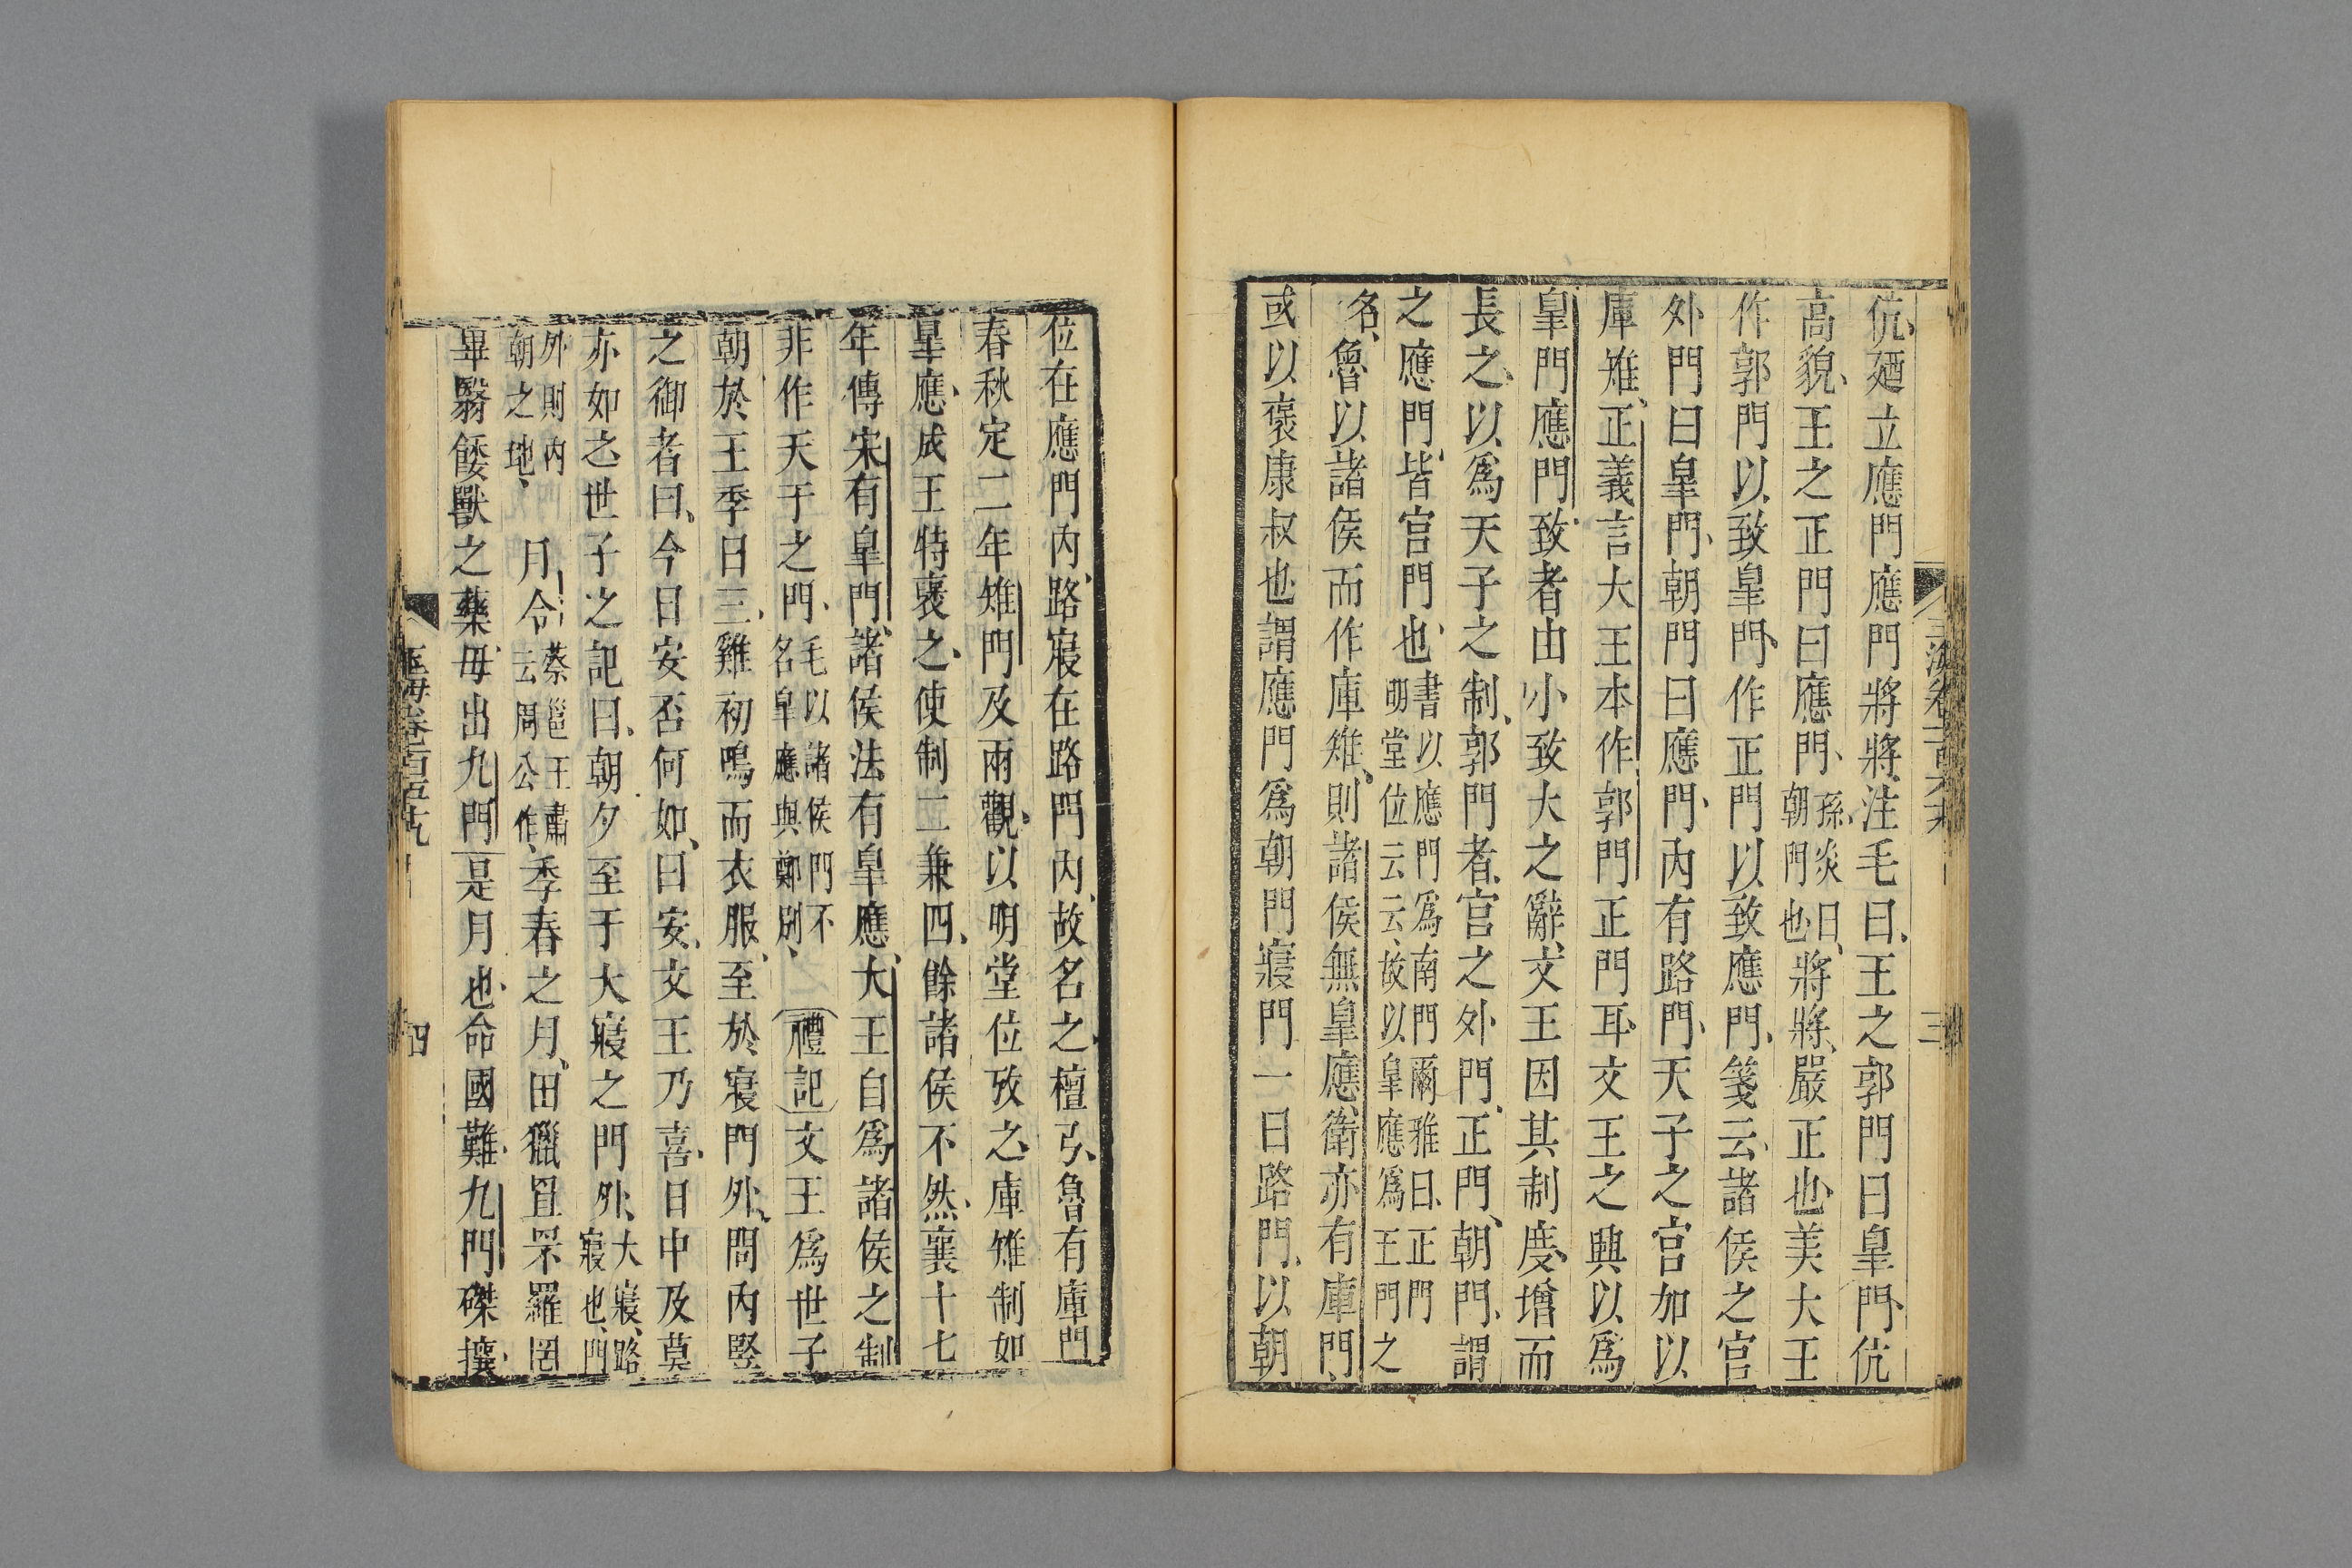 伉廼立應門應門將將注毛曰王之郭門曰皐門伉
高貌王之正門曰應門孫炎曰朝門也將將嚴正也美大王
作郭門以致皐門作正門以致應門箋云諸侯之宫
外門曰皐門朝門曰應門内有路門天子之宫加以
庫雉正義言大王本作郭門正門耳文王之興以爲
皐門應門致者由小致大之辭文王因其制度增而
長之以爲天子之制郭門者宫之外門正門朝門謂
之應門皆宫門也書以應門爲南門爾雅曰正門明堂位云云故以皐應爲王門之
名魯以諸侯而作庫雉則諸侯無皐應衛亦有庫門
或以褒康叔也謂應門爲朝門寢門一曰路門以朝
三
位在應門内路寢在路門内故名之檀弓魯有庫門
春秋定二年雉門及兩觀以明堂位攷之庫雉制如
皐應成王特襃之使制二兼四餘諸侯不然襄十七
年傳宋有皐門諸侯法有皐應大王自爲諸侯之制
非作天子之門毛以諸侯門不名皐應與鄭别禮記文王爲世子
朝於王季日三雞初鳴而衣服至於寢門外問内豎
之御者曰今日安否何如曰安文王乃喜日中及莫
亦如之世子之記曰朝夕至于大寢之門外大寢路寢也門
外則内朝之地月令蔡邕王肅云周公作季春之月田獵罝罘羅罔
畢翳餧獸之藥毋出九門是月也命國難九門磔攘
四